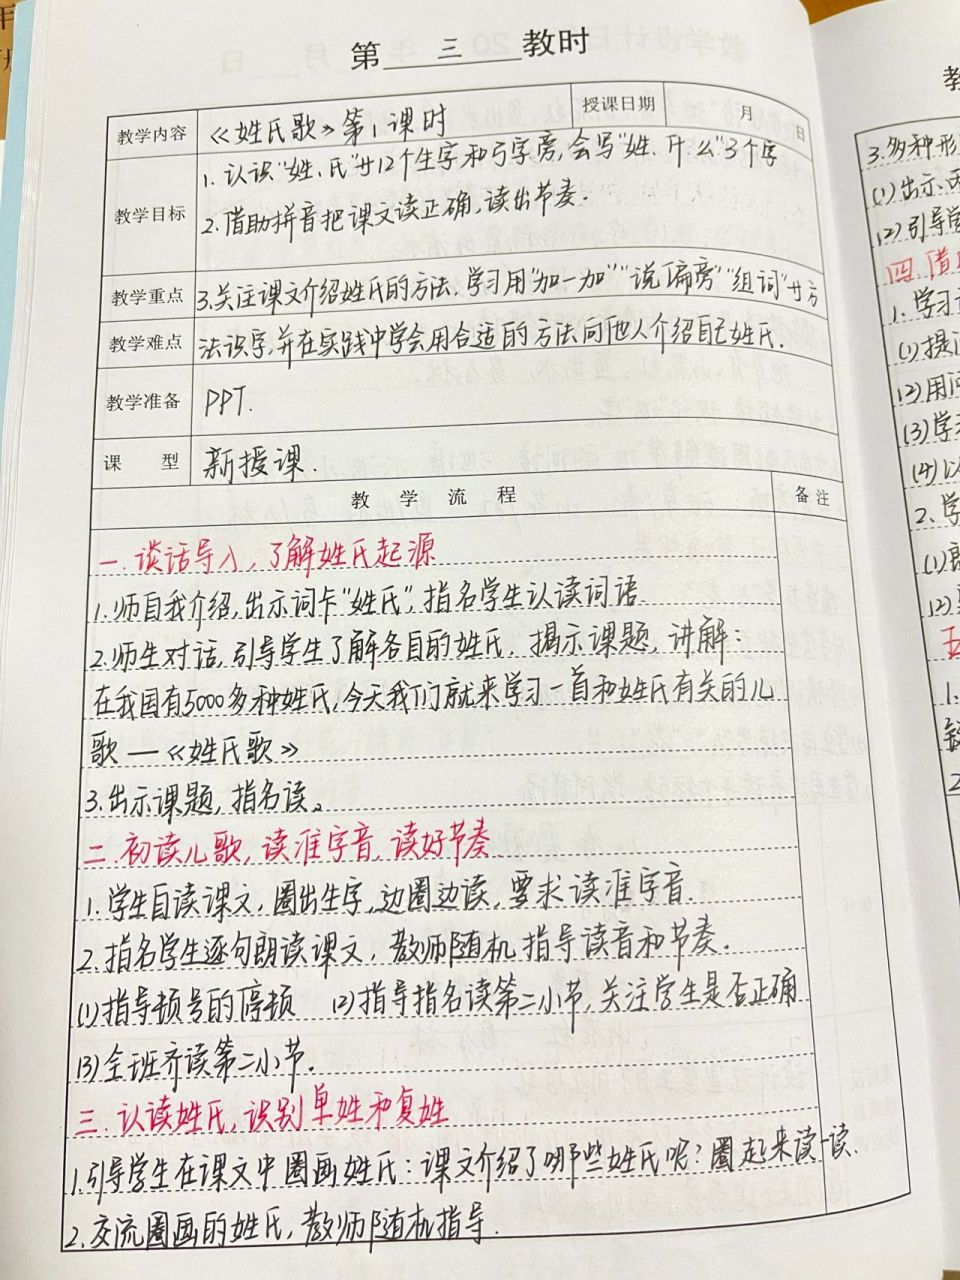 第 三 教时
教学内容 《姓氏歌》第1课时 授课日期 月 日
教学目标 1. 认识"姓、氏"廿12个生字和弓字旁,会写"姓、什、么"3个字
2. 借助拼音把课文读正确,读出节奏.
教学重点 3.关注课文介绍姓氏的方法,学习用"加一加""说偏旁""组词"廿方
教学难点 法识字,并在实践中学会用合适的方法向他人介绍自己姓氏.
教学准备 PPT.
课 型 新授课.
教 学 流 程 备 注
一. 谈话导入,了解姓氏起源
1.师自我介绍,出示词卡"姓氏",指名学生认读词语.
2.师生对话,引导学生了解各自的姓氏,揭示课题,讲解:
在我国有5000多种姓氏,今天我们就来学习一首和姓氏有关的儿
歌—《姓氏歌》
3.出示课题,指名读。
二.初读儿歌,读准字音,读好节奏.
1.学生自读课文,圈出生字,边圈边读,要求读准字音.
2.指名学生逐句朗读课文,教师随机指导读音和节奏.
(1)指导顿号的停顿 (2)指导指名读第二小节,关注学生是否正确
(3)全班齐读第二小节.
三.认读姓氏,识别单姓和复姓
1.引导学生在课文中圈画姓氏:课文介绍了哪些姓氏呢?圈起来读一读.
2.交流圈画的姓氏,教师随机指导.
3.多种形
(1)出示
(2)引导学
四 借
1.学习
(1)提
(2)用
(3)学
(4)以
2.学
(1)
(2)
五
1.
2